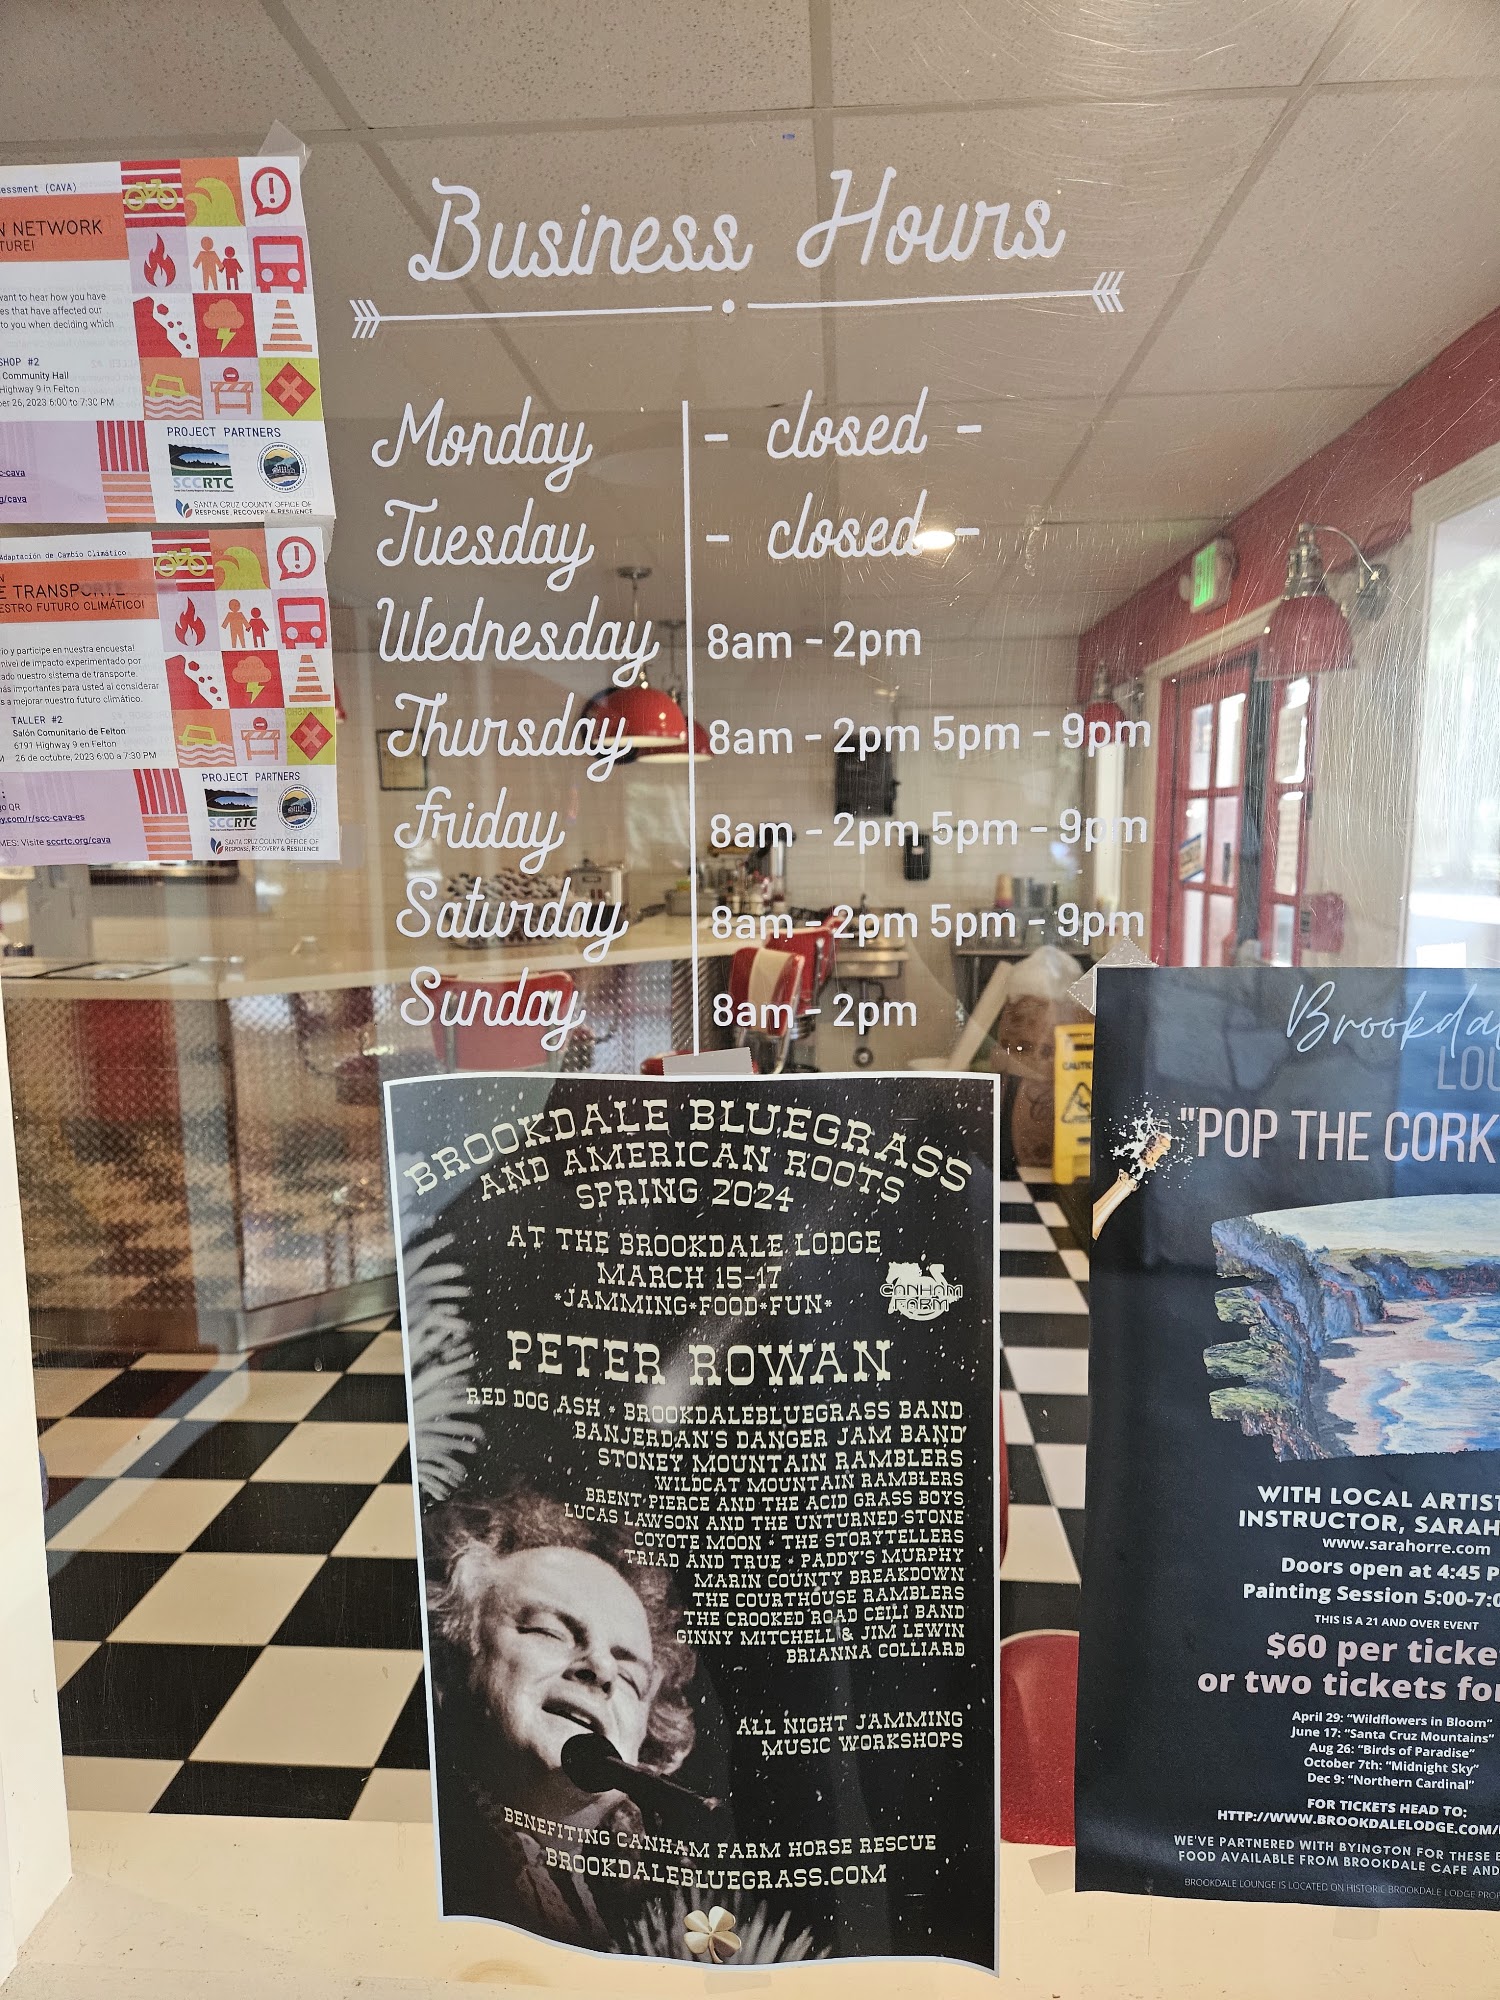 Business Hours
Monday - closed -
Tuesday - closed -
Wednesday 8am - 2pm
Thursday 8am - 2pm 5pm - 9pm
Friday 8am - 2pm 5pm - 9pm
Saturday 8am - 2pm 5pm - 9pm
Sunday 8am - 2pm
(CAVA)
NETWORK
want to hear how you have
that have affected our
to you when deciding which
#2
Community Hall
Highway 9 in Felton
26, 2023 6:00 to 7:30 PM
PROJECT PARTNERS
SCCRTC
SANTA CRUZ COUNTY OFFICE OF
RESPONSE, RECOVERY & RESILIENCE
/cava
Adaptación de Cambio Climático
TRANSPORTE
FUTURO CLIMÁTICO!
y participe en nuestra encuesta!
nivel de impacto experimentado por
nuestro sistema de transporte.
importantes para usted al considerar
a mejorar nuestro futuro climático.
TALLER #2
Salón Comunitario de Felton
6191 Highway 9 en Felton
26 de octubre, 2023 6:00 a 7:30 PM
PROJECT PARTNERS
QR
/r/scc-cava-es
SCCRTC
Visite sccrtc.org/cava
SANTA CRUZ COUNTY OFFICE OF
RESPONSE, RECOVERY & RESILIENCE
BROOKDALE BLUEGRASS
AND AMERICAN ROOTS
SPRING 2024
AT THE BROOKDALE LODGE
MARCH 15-17
*JAMMING*FOOD*FUN*
CANHAM
FARM
PETER ROWAN
RED DOG ASH * BROOKDALEBLUEGRASS BAND
BANJERDAN'S DANGER JAM BAND
STONEY MOUNTAIN RAMBLERS
WILDCAT MOUNTAIN RAMBLERS
BRENT PIERCE AND THE ACID GRASS BOYS
LUCAS LAWSON AND THE UNTURNED STONE
COYOTE MOON * THE STORYTELLERS
TRIAD AND TRUE * PADDY'S MURPHY
MARIN COUNTY BREAKDOWN
THE COURTHOUSE RAMBLERS
THE CROOKED ROAD CEILI BAND
GINNY MITCHELL & JIM LEWIN
BRIANNA COLLIARD
ALL NIGHT JAMMING
MUSIC WORKSHOPS
BENEFITING CANHAM FARM HORSE RESCUE
BROOKDALEBLUEGRASS.COM
"POP THE CORK
WITH LOCAL ARTIST
INSTRUCTOR, SARAH
www.sarahorre.com
Doors open at 4:45
Painting Session
THIS IS A 21 AND OVER EVENT
$60 per
or two tickets
April 29: "Wildflowers in Bloom"
June 17: "Santa Cruz Mountains"
Aug 26: "Birds of Paradise"
October 7th: "Midnight Sky"
Dec 9: "Northern Cardinal"
FOR TICKETS HEAD TO:
HTTP://WWW.BROOKDALELODGE.COM/
WE'VE PARTNERED WITH BYINGTON FOR THESE
FOOD AVAILABLE FROM BROOKDALE CAFE AND
BROOKDALE LOUNGE IS LOCATED ON HISTORIC BROOKDALE LODGE
EXIT
CAUTION